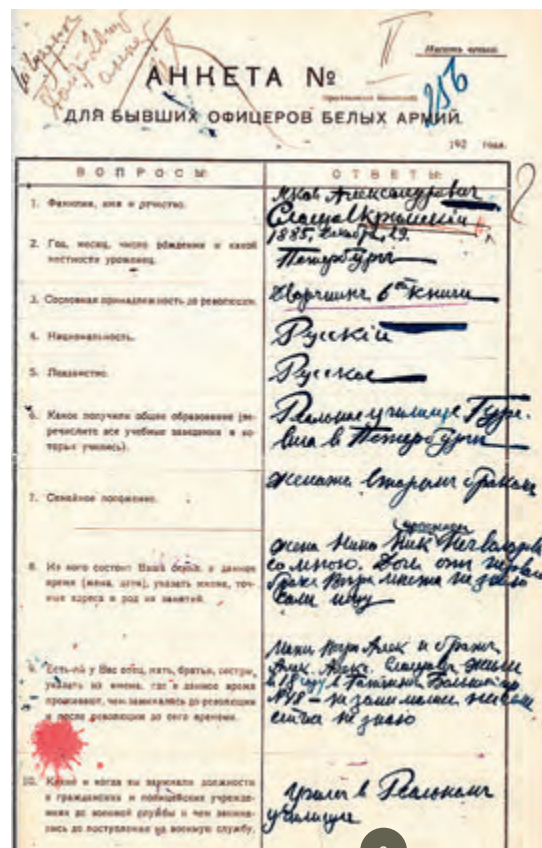 Писать чётко.
256
АНКЕТА №
ДЛЯ БЫВШИХ ОФИЦЕРОВ БЕЛЫХ АРМИЙ.
192 года.
ВОПРОСЫ: ОТВЕТЫ:
1. Фамилия, имя и отчество.
Яков Александрович
Слащов-Крымский
2. Год, месяц, число рождения и какой
местности уроженец.
1885, декабря, 29.
Петербург
3. Сословная принадлежность до революции.
Дворянин 6ой книги
4. Национальность.
Русскій
5. Подданство.
Русское
6. Какое получили общее образование (пе-
речислите все учебные заведения в ко-
торых учились).
Реальное училище Гуре-
вича в Петербурге
7. Семейное положение.
женат вторым браком
8. Из кого состоит Ваша семья в данное
время (жена, дети), указать имена, точ-
ные адреса и род их занятий.
жена Нина Ник Нечволодова
со мною. Дочь от первого
брака Вера место не знаю
сам ищу
9. Есть-ли у Вас отец, мать, братья, сестры,
указать их имена, где в данное время
проживают, чем занимались до революции
и после революции до сего времени.
Мать Вера Алек и брат
Алек Алекс. Слащовы жили
в 18 году в Гатчине
№18 — не занимались
сейчас не знаю
10. Какие и когда вы занимали должности
в гражданских и полицейских учрежде-
ниях до военной службы и чем занима-
лись до поступления на военную службу.
учился в Реальном
училище